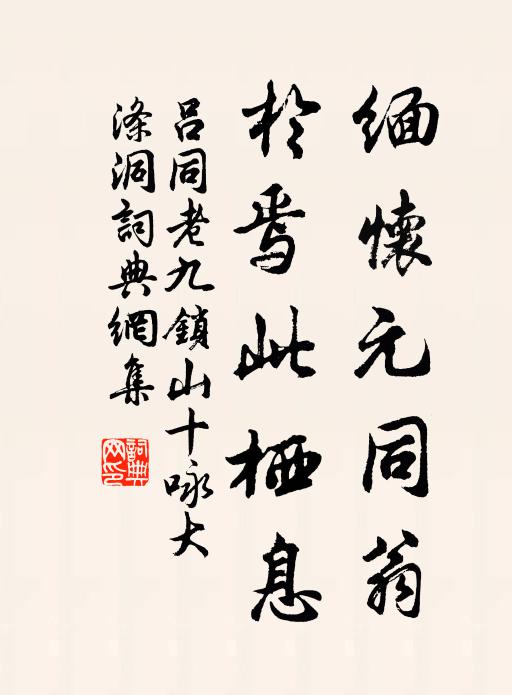 緬懷元同翁
於焉此栖息
呂同老九鎖山十咏大
滌洞詞典網集
詞典網印